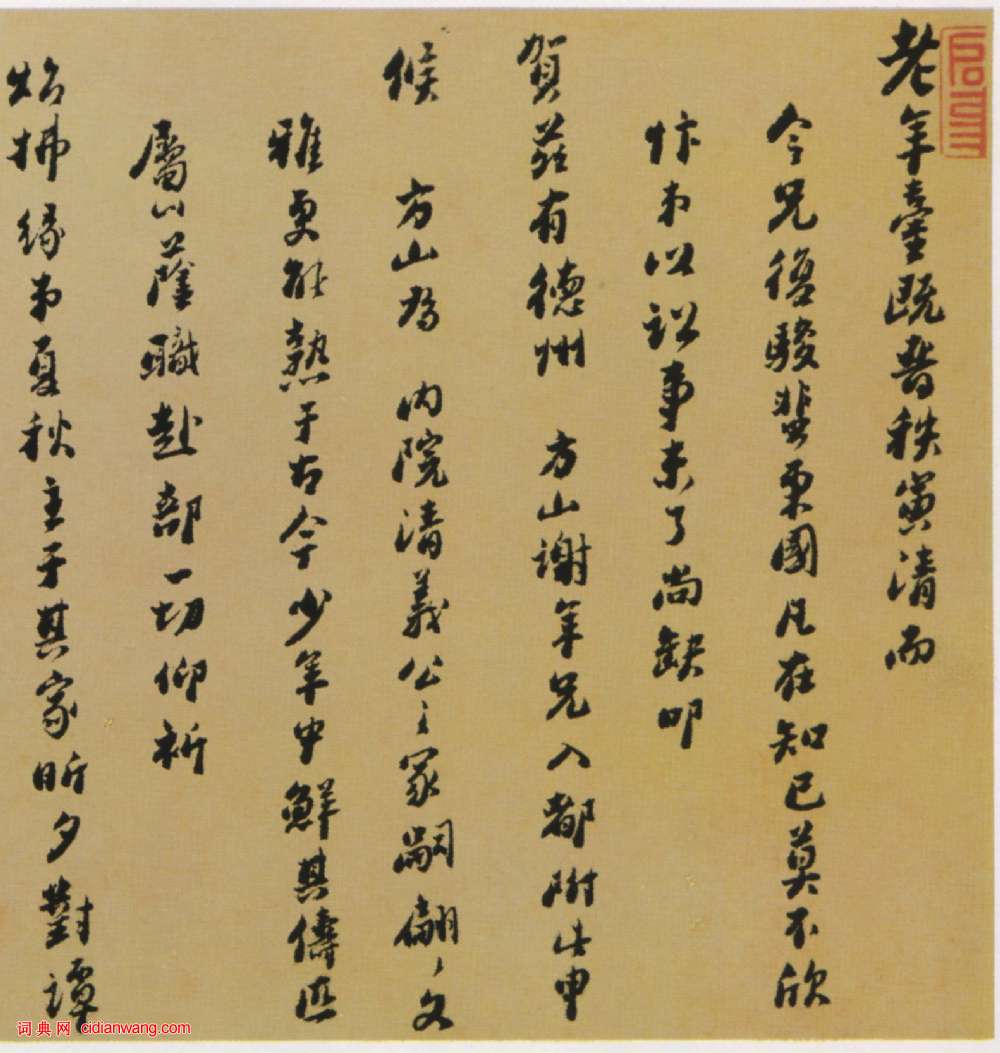 老年臺既晉秩寅清而
今兄復駿蜚東國凡在知己莫不欣
忭弟以訟事未了尚缺叩
賀茲有德州 方山謝年兄入都附此申
候 方山為 內院清義公之冢嗣翩〻文
雅更能熱于古今少年中鮮其儔匹
屬以蔭職赴部一切仰祈
炤拂緣弟夏秋主于其家昕夕對譚
词典网 cidianwang.com